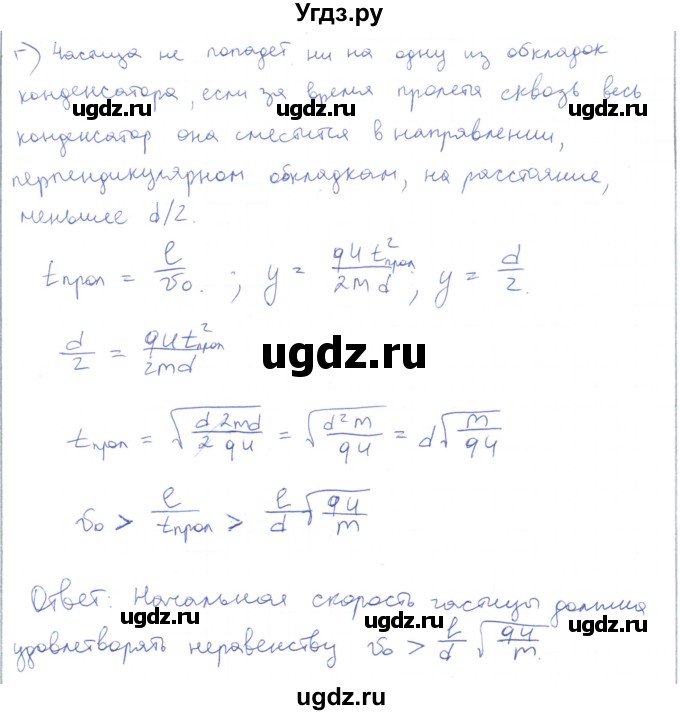 Угдз.ру
г) Частица не попадет ни на одну из обкладок
конденсатора, если за время пролета сквозь весь
ugdz.ru ugdz.ru
конденсатор она сместится в направлении,
перпендикулярном обкладкам, на расстояние,
меньшее d/2.
t_прол = l/v₀. ; y = qUt²_прол/2md ; y = d/2.
d/2 = qUt²_прол/2md
ugdz.ru
t_прол = √(d 2md/2 qU) = √(d²m/qU) = d√(m/qU)
v₀ > l/t_прол > l/d √(qU/m)
Ответ: Начальная скорость частицы должна
ugdz.ru ugdz.ru
удовлетворять неравенству v₀ > l/d √(qU/m).
ugdz.ru